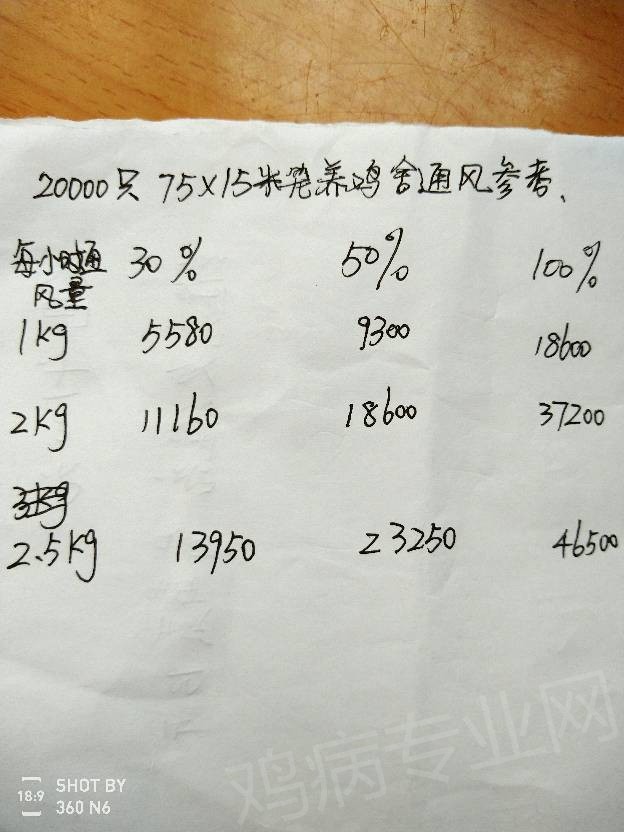 20000只 75X15米笼养鸡舍通风参考、
每小时通风量 30% 50% 100%
1kg 5580 9300 18600
2kg 11160 18600 37200
3kg
2.5kg 13950 23250 46500
鸡病专业网
18:9 SHOT BY
360 N6